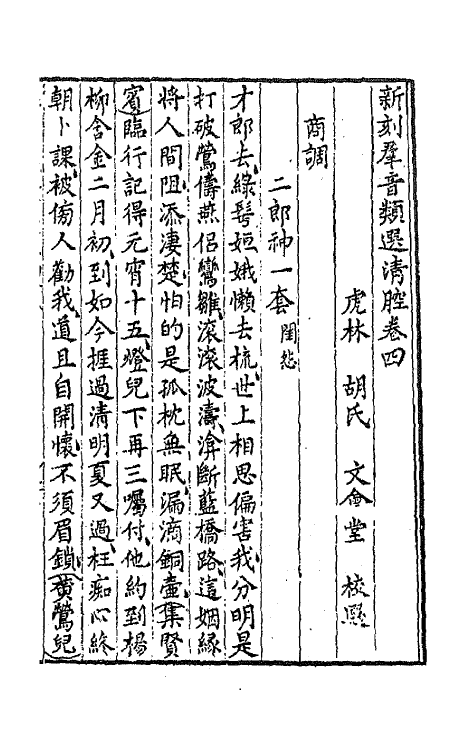 新刻羣音類選清腔卷四
虎林 胡氏 文會堂 校
商調
二郎神一套 閨愁
才郎去綠鬓姮娥懶去梳世上相思偏害我分明是
打破鶯儔燕侶鸞雛滾滾波濤渰斷藍橋路這姻緣
將人間阻添凄楚怕的是孤枕無眠漏滴銅壺集賢
賓臨行記得元宵十五燈兒下再三囑付他約到楊
柳含金二月初到如今捱過清明夏又過枉痴心終
朝卜課被傍人勸我道且自開懷不須眉鎖黄鶯兒